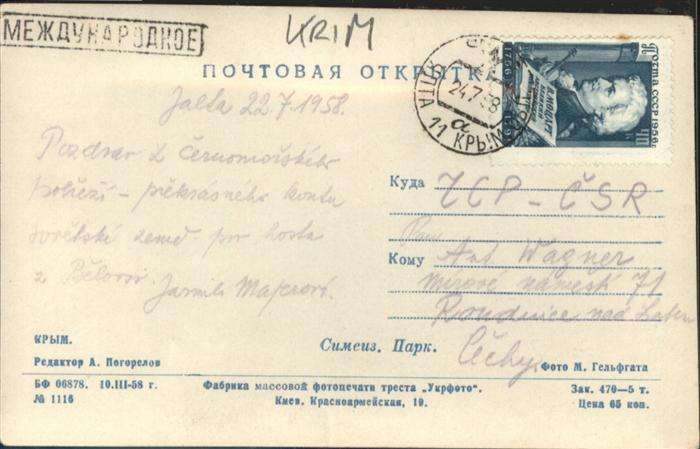 МЕЖДУНАРОДНОЕ
KRIM
ПОЧТОВАЯ ОТКРЫТКА
ЯЛТА 24.7.58
11 КРЫМ
а
ПОЧТА СССР 1956
В. МОЦАРТ
Jalta 22.7.1958.
Pozdrav z černomořského
pobřeží – překrásného koutu
sovětské země
z
Jarmila Majerová
Куда
ЧСР - ČSR
Кому
Paní
Ant. Wagner
mírové náměstí 71
Roudnice nad Labem
Čechy
КРЫМ.
Редактор А. Погорелов
Симеиз. Парк.
Фото М. Гельфгата
БФ 06878. 10.III-58 г.
№ 1116
Фабрика массовой фотопечати треста „Укрфото".
Киев. Красноармейская, 19.
Зак. 470—5 т.
Цена 65 коп.